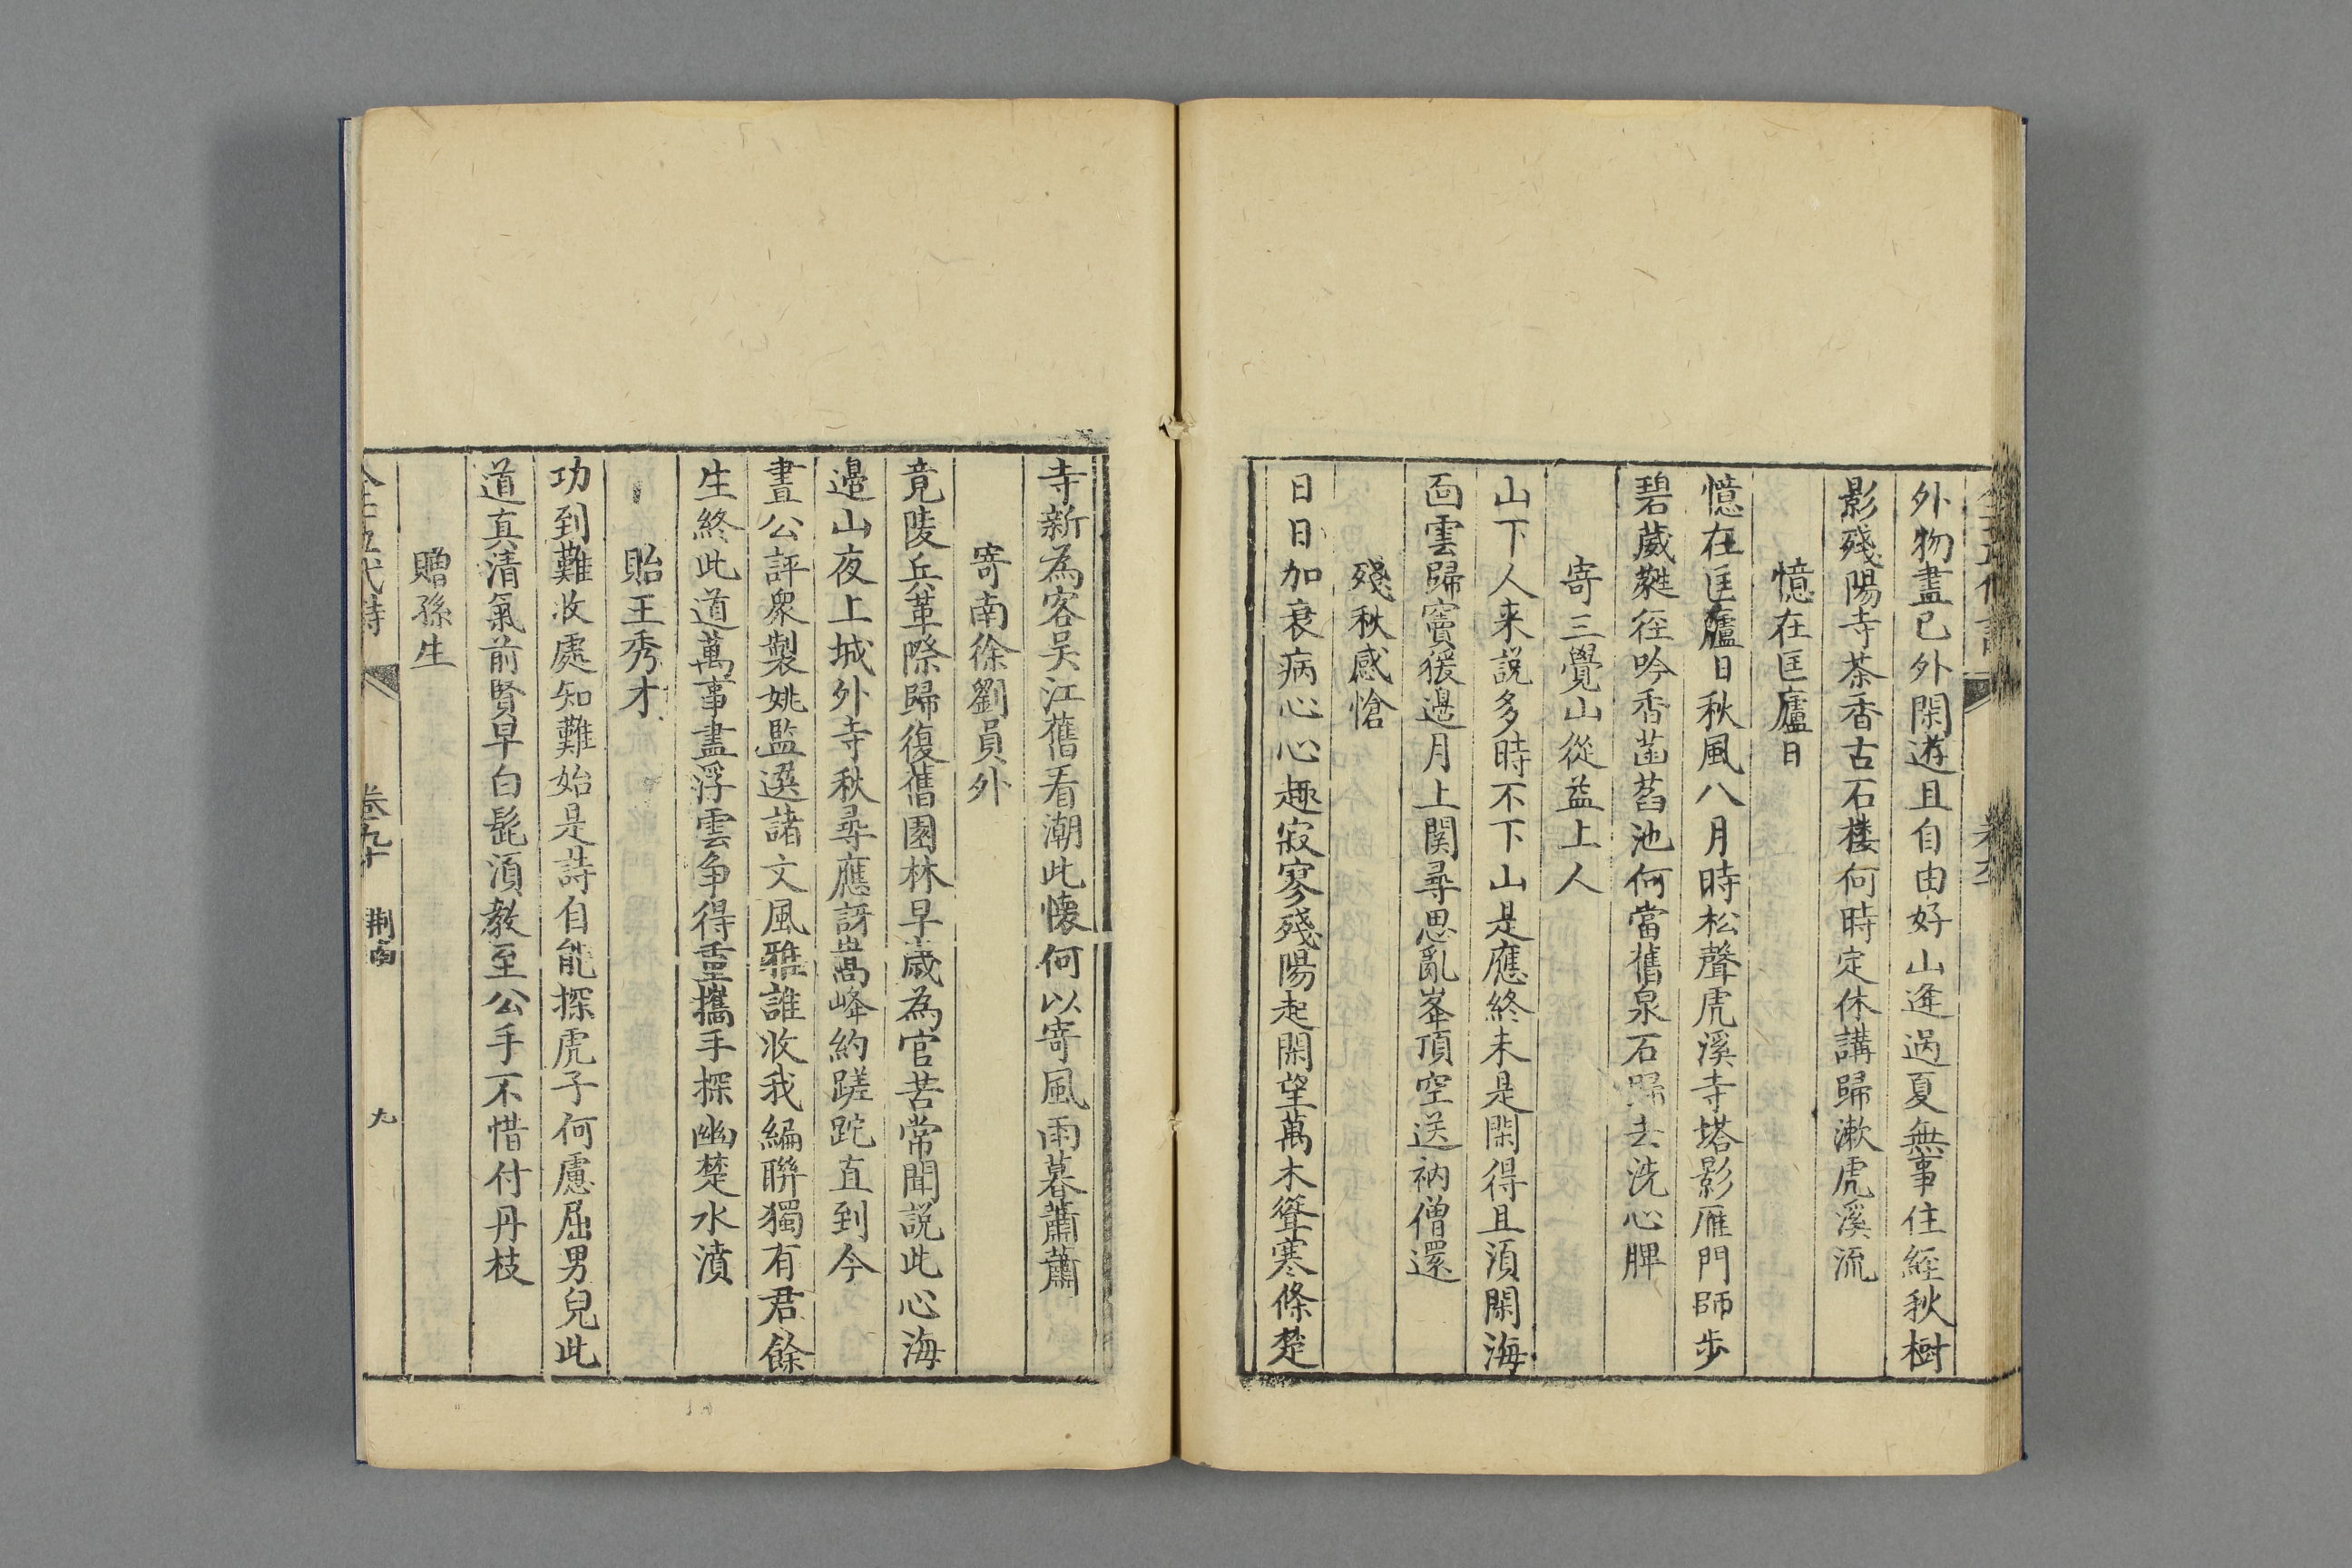 外物盡已外閑遊且自由好山逢過夏無事住經秋樹
影殘陽寺茶香古石楼何時定休講歸漱虎溪流
憶在匡廬日
憶在匡廬日秋風八月時松聲虎溪寺塔影雁門師步
碧葳蕤徑吟香菡萏池何當舊泉石歸去洗心脾
寄三覺山從益上人
山下人来説多時不下山是應終未是閑得且須閑海
面雲歸竇猨邊月上関尋思亂峯頂空送衲僧還
殘秋感愴
日日加衰病心心趣寂寥殘陽起閑望萬木聳寒條楚
寺新為客吴江舊看潮此懐何以寄風雨暮蕭蕭
寄南徐劉員外
竟陵兵革際歸復舊園林早歳為官苦常聞説此心海
邊山夜上城外寺秋尋應訝嵩峰約蹉跎直到今
晝公評衆製姚監選諸文風雅誰收我編聯獨有君餘
生終此道萬事盡浮雲争得重攜手探幽楚水濆
貽王秀才
功到難收處知難始是詩自能探虎子何慮屈男兒此
道真清氣前賢早白髭須教至公手不惜付丹枝
贈孫生
五代詩 卷九十 荆南 九